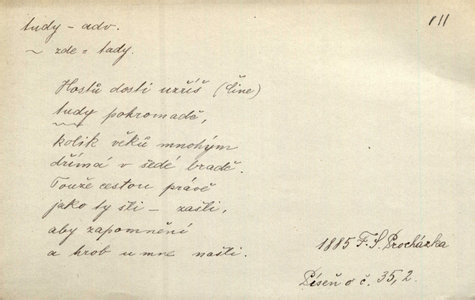 tudy - adv.
~ zde = tady.
011
Hostů dosti uzříš (Line)
tudy pohromadě,
kolik věků mnohým
dřímá v šedé bradě.
Touže cestou právě
jako ty šli - zašli,
aby zapomnění
a hrob u mne našli.
1885 F. S. Procházka
Píseň č. 35, 2.